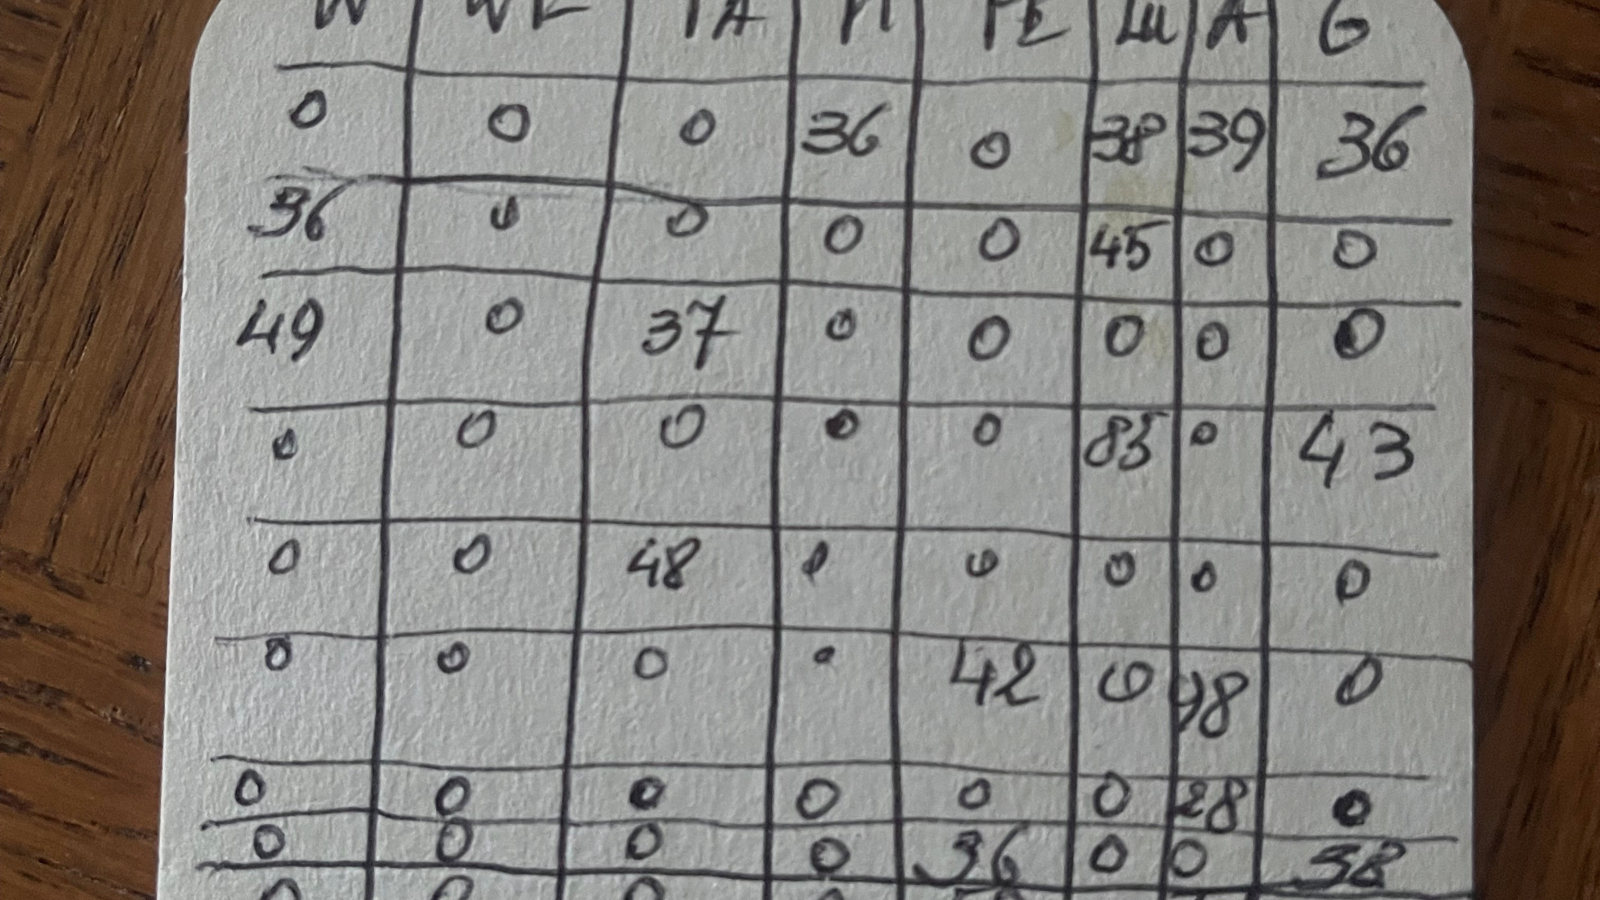 W WL TA M PE LU A G
0 0 0 36 0 38 39 36
36 0 0 0 0 45 0 0
49 0 37 0 0 0 0 0
0 0 0 0 0 85 0 43
0 0 48 0 0 0 0 0
0 0 0 0 42 0 48 0
0 0 0 0 0 0 28 0
0 0 0 0 36 0 0 38